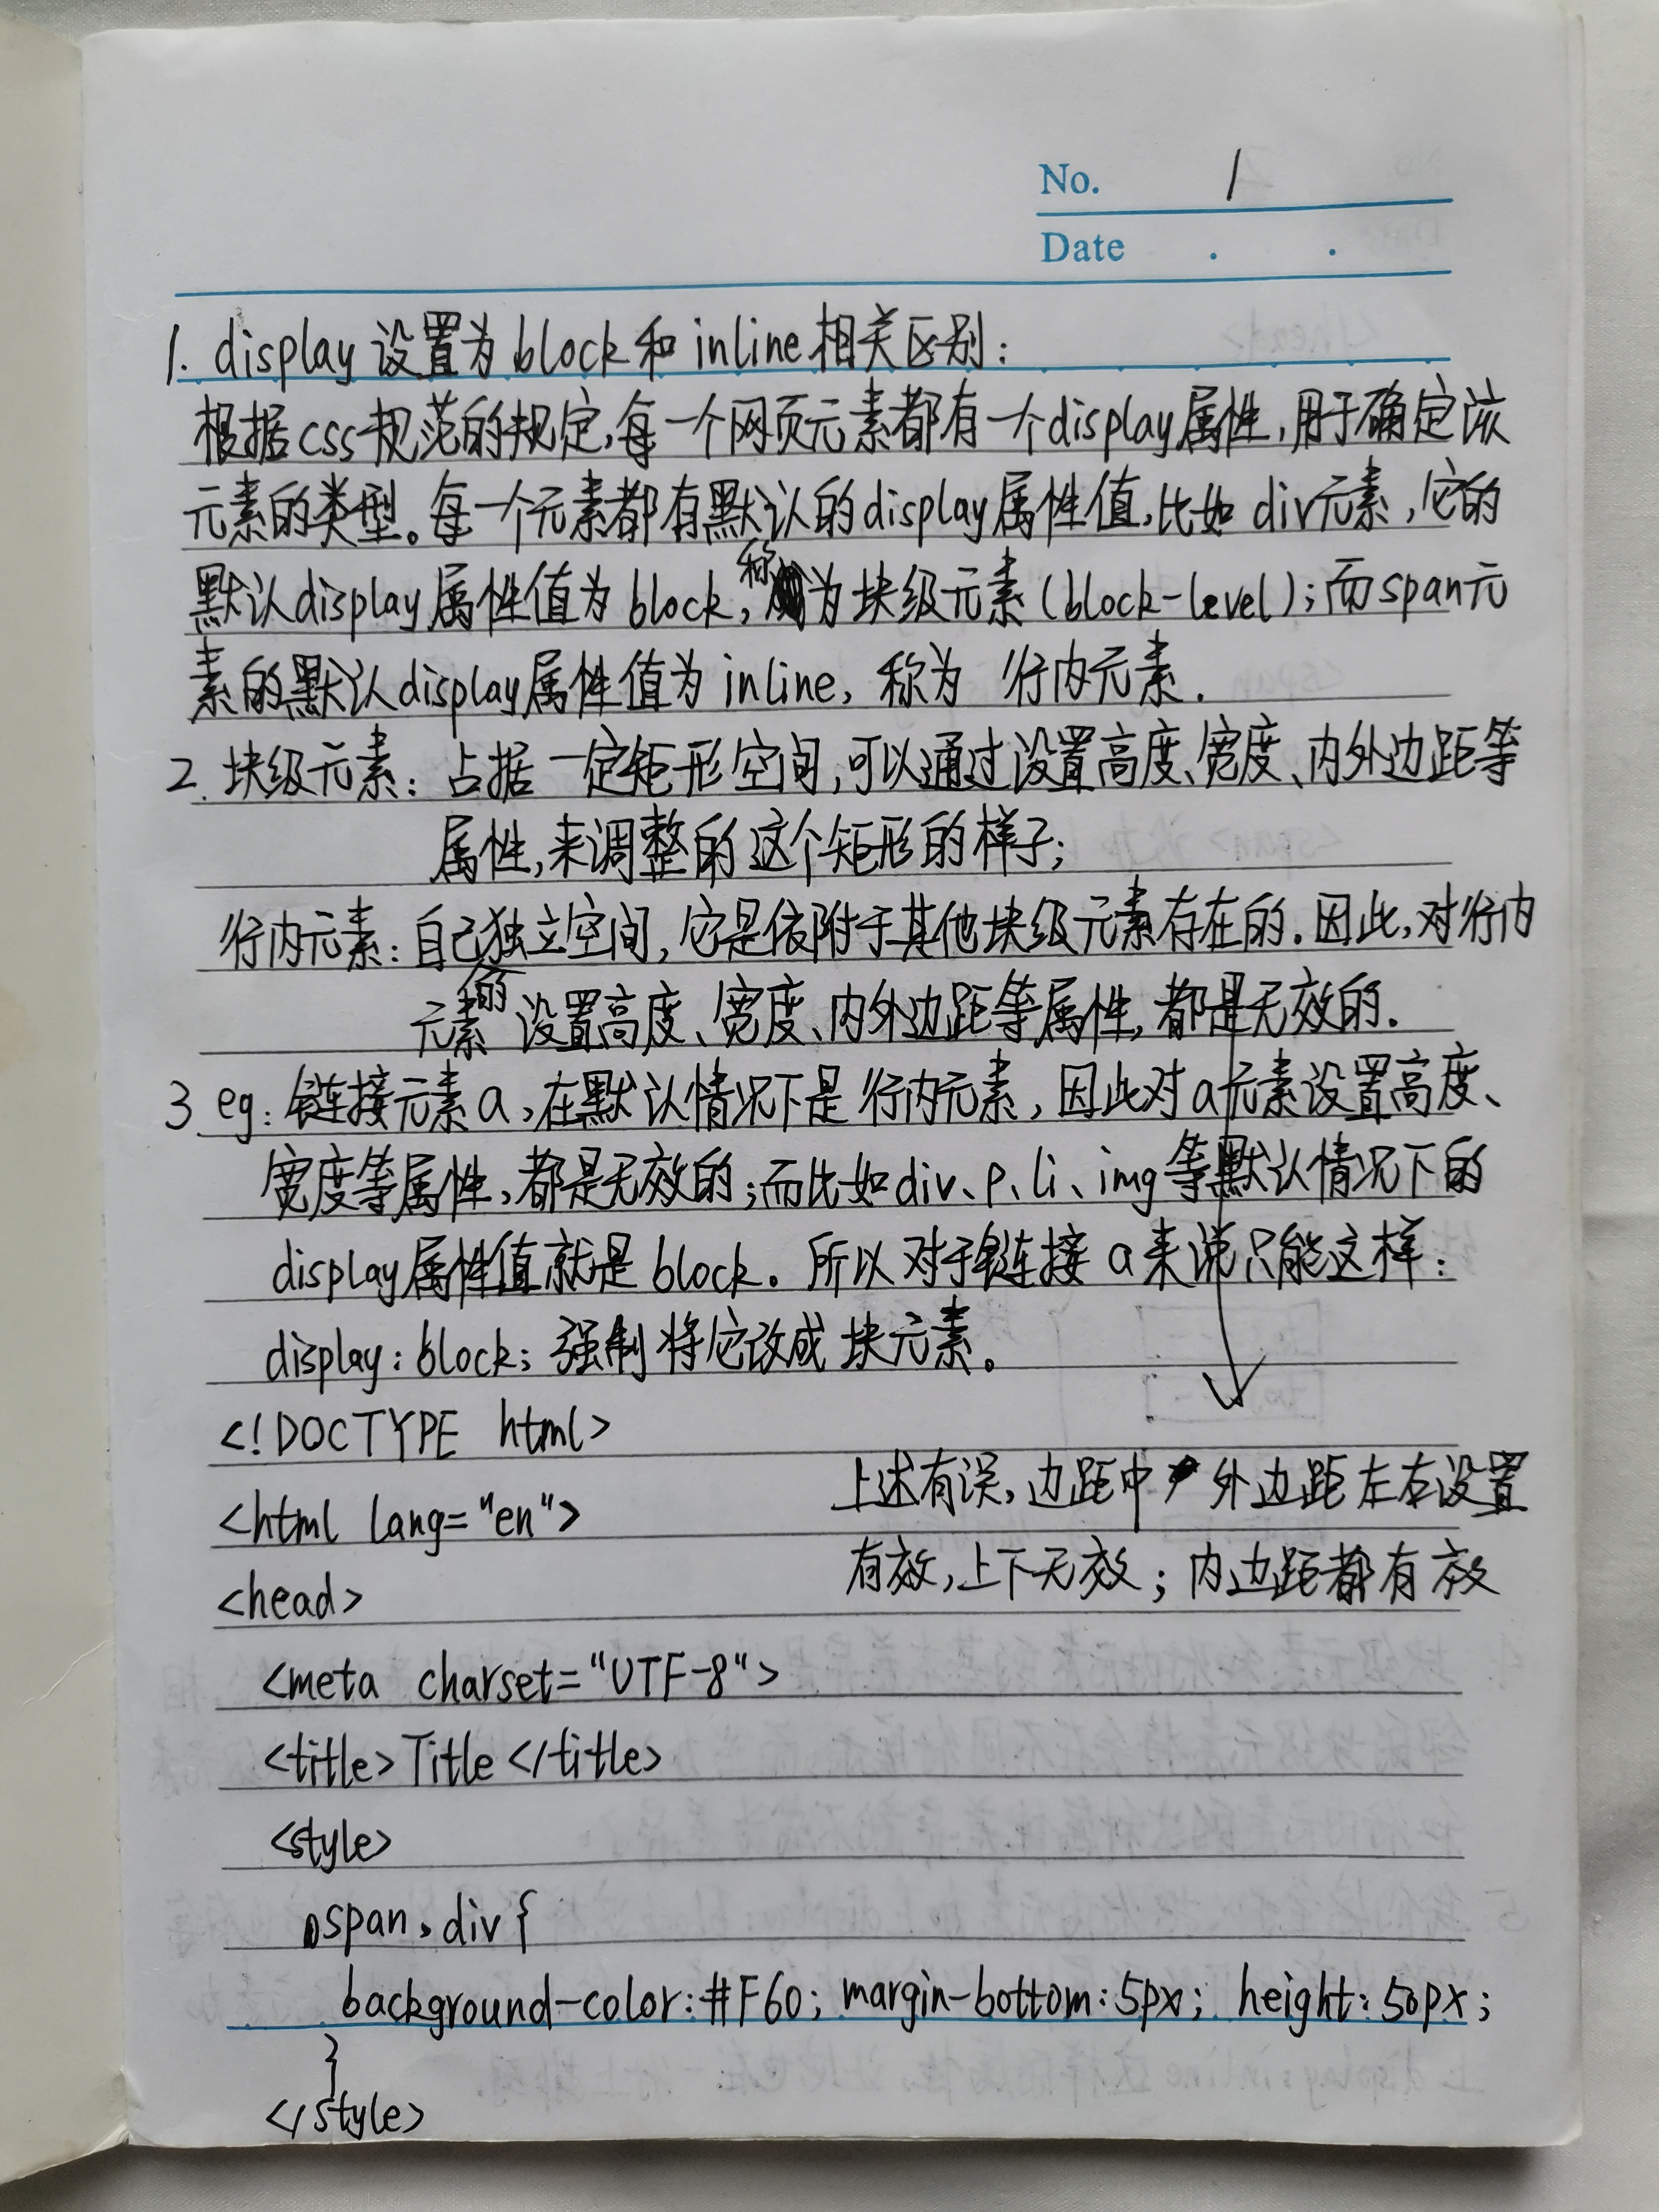 No. 1
Date . .
1. display 设置为 block 和 inline 相关区别:
根据css规范的规定,每一个网页元素都有一个display属性,用于确定该
元素的类型。每一个元素都有默认的display属性值,比如 div元素,它的
默认display属性值为 block,称为块级元素(block-level);而span元
素的默认display属性值为 inline, 称为 行内元素.
2. 块级元素: 占据一定矩形空间,可以通过设置高度、宽度、内外边距等
属性,来调整的这个矩形的样子;
行内元素: 自己独立空间,它是依附于其他块级元素存在的.因此,对行内
元素的设置高度、宽度、内外边距等属性,都是无效的.
3 eg: 链接元素a,在默认情况下是 行内元素,因此对a元素设置高度、
宽度等属性,都是无效的;而比如div、p、li、img等默认情况下的
display属性值就是 block。所以对于链接 a来说只能这样:
display: block; 强制将它改成 块元素。
<!DOCTYPE html>
上述有误,边距中 外边距左右设置
<html lang="en">
有效,上下无效;内边距都有效
<head>
<meta charset="UTF-8">
<title>Title</title>
<style>
span,div{
background-color:#F60; margin-bottom:5px; height:50px;
}
</style>